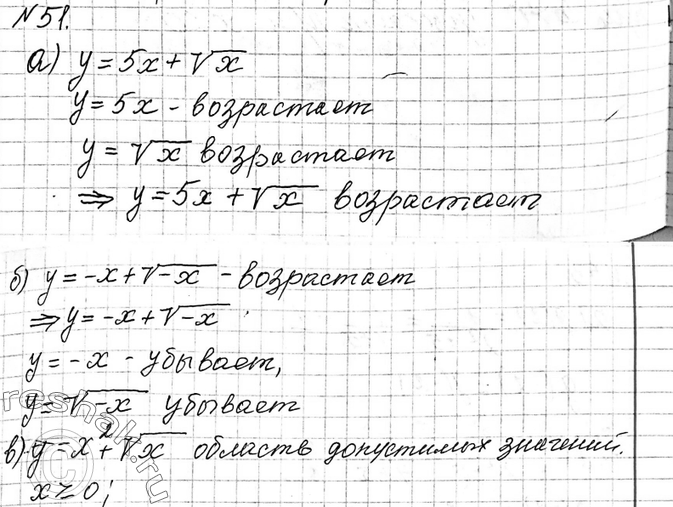 №51.
а) y = 5x + √x
y = 5x - возрастает
y = √x возрастает
⇒ y = 5x + √x возрастает
б) y = -x + √-x - возрастает
⇒ y = -x + √-x
y = -x - убывает,
y = √-x убывает
в) y = x² + √x область допустимых значений.
x ≥ 0;
reshak.ru